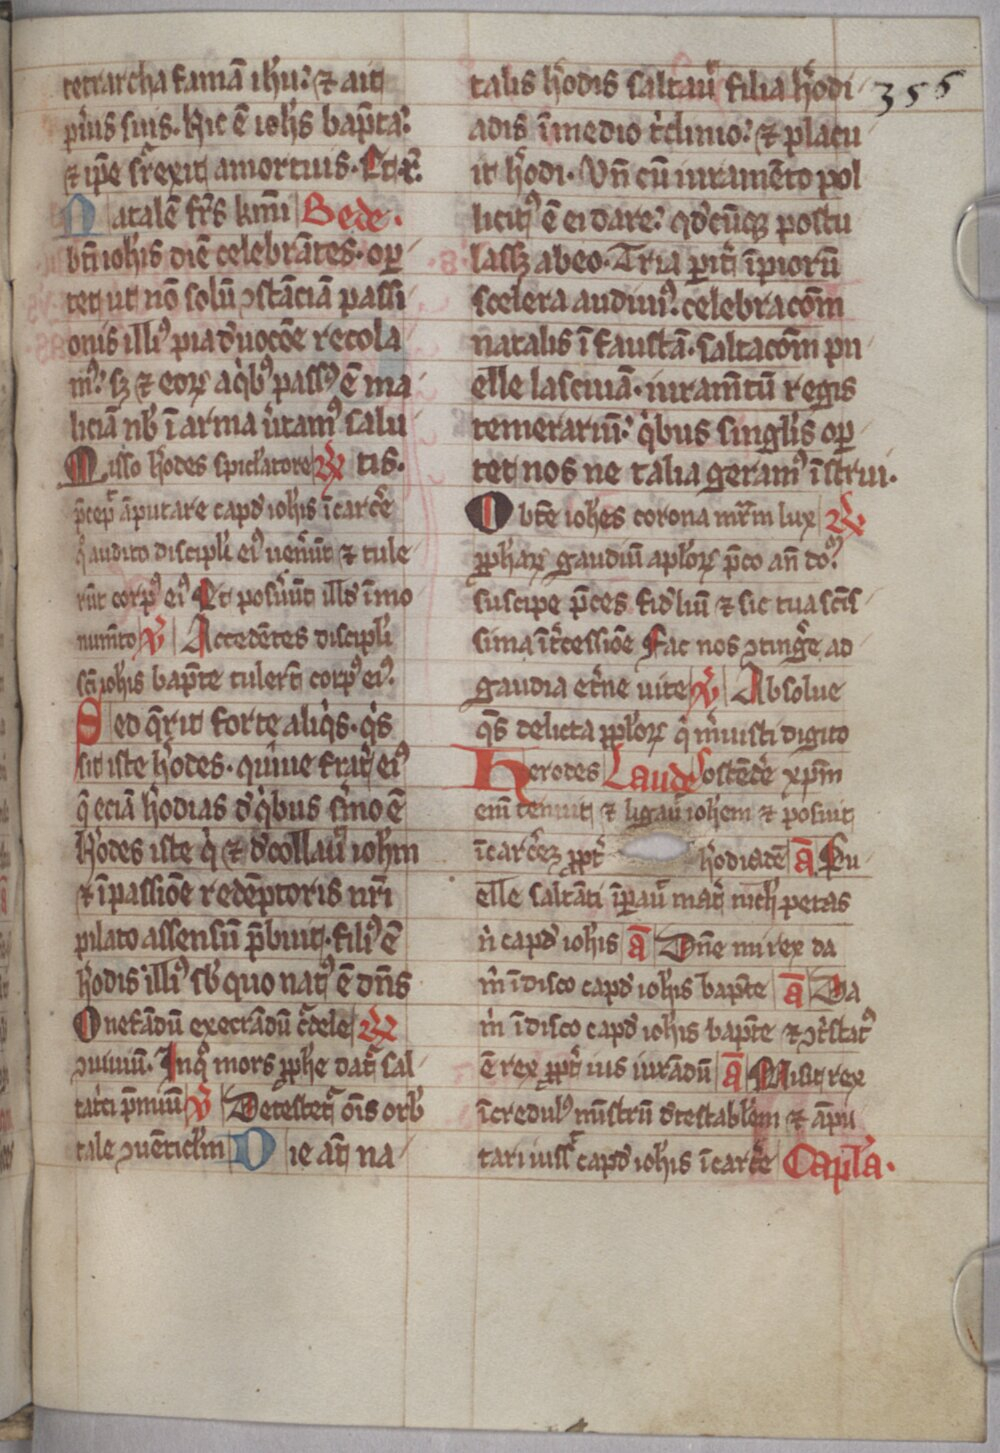 tetrarcha famā ihu: & ait
pueris suis. Hic ē ioh̄s bap̄ta:
& ip̄e surexit a mortuis. Et r̄.
Natalē fr̄s km̄i Bede.
btī ioh̄is diē celebrātes. opor
tet ut nō solū ↄstāciā passi
onis illi⁹ pia deuocōe recola
m⁹: sȝ & eoꝝ a q̇b⁹ pass⁹ ē ma
liciā nb̄ ī arma u̇tam⁹ salu
Misso h̄odes spiclatore ℟ tis.
p̄cep̄ āputare capđ ioh̄is ī carc̄e
q̊ audito discipl̄i ei⁹ uen̄ūt & tule
rūt corp⁹ ei⁹ Et posūūt illđ ī mo
num̄to ℣ Accedētes discipl̄i
sc̄i ioh̄is bap̄te tulert̄ corp⁹ ei⁹.
Sed q̄rit forte aliq̇s. q̇s
sit iste h̄odes. quiue frat̄ ei⁹
q̄ eciā h̄odias đ q̇bus s̄mo ē
h̄odes iste q̇ & đcollau̇ ioh̄m
& ī passiōe redēptoris nr̄i
pilato assensū p̄buit. fili⁹ ē
h̄odis illi⁹ sb̄ quo nat⁹ ē dn̄s
O nefādū execrādū c̄dele ℟
ↄuiuiū. In q̊ mors ꝓphe dat̄ sal
tat̄ci p̄miū ℣ Detestet̄ ōīs orb̄
tale ↄuēticl̄m Die āt̄ na
talis h̄odis saltau̇ filia h̄odi 356
adis ī medio t̄clinio: & placu
it h̄odi. Vn̄ cū iuramēto pol
licit⁹ ē ei dare: qđcūqȝ postu
lassȝ ab eo. Tria ꝑit̄ īpiorū
scelera audiui⁹. celebracōm̄
natalis ī faustā. saltacōm̄ pu
elle lasciuā. iuram̄tū regis
temerariū: q̇bus singl̄is opor
tet nos ne talia geram⁹ īstrui.
O bt̄e ioh̄es corona mr̄m lux ℟
ꝓphaꝝ gaudiū apl̄oꝝ p̄co an̄ to⁹
suscipe p̄ces fiđliū & sic tua sct̄is
sima īt̄cessiōe Fac nos ↄtinḡe ad
gaudia et̄ne uite ℣ Absolue
qs̄ delicta pp̄l̄oꝝ q̇ m̄uisti digito
Herodes Laude ostēđe xp̄m
em̄ tenuit & ligau̇ ioh̄em & posuit
ī carc̄eȝ ꝓpt̄ h̄odiadē ā Pu
elle saltāti īpau̇ mat̄ nich̄ petas
n̄ capđ ioh̄is ā Dn̄e mi rex da
m̄ ī disco capđ ioh̄is bap̄te ā Da
m̄ ī disco capđ ioh̄is bap̄te & ↄt̄stat⁹
ē rex ꝓpt̄ ius iurādū ā Misit rex
īcredul⁹ mīstrū detestabl̄em & āpu
tari iuss̄ capđ ioh̄is ī carc̄e Capl̄a.